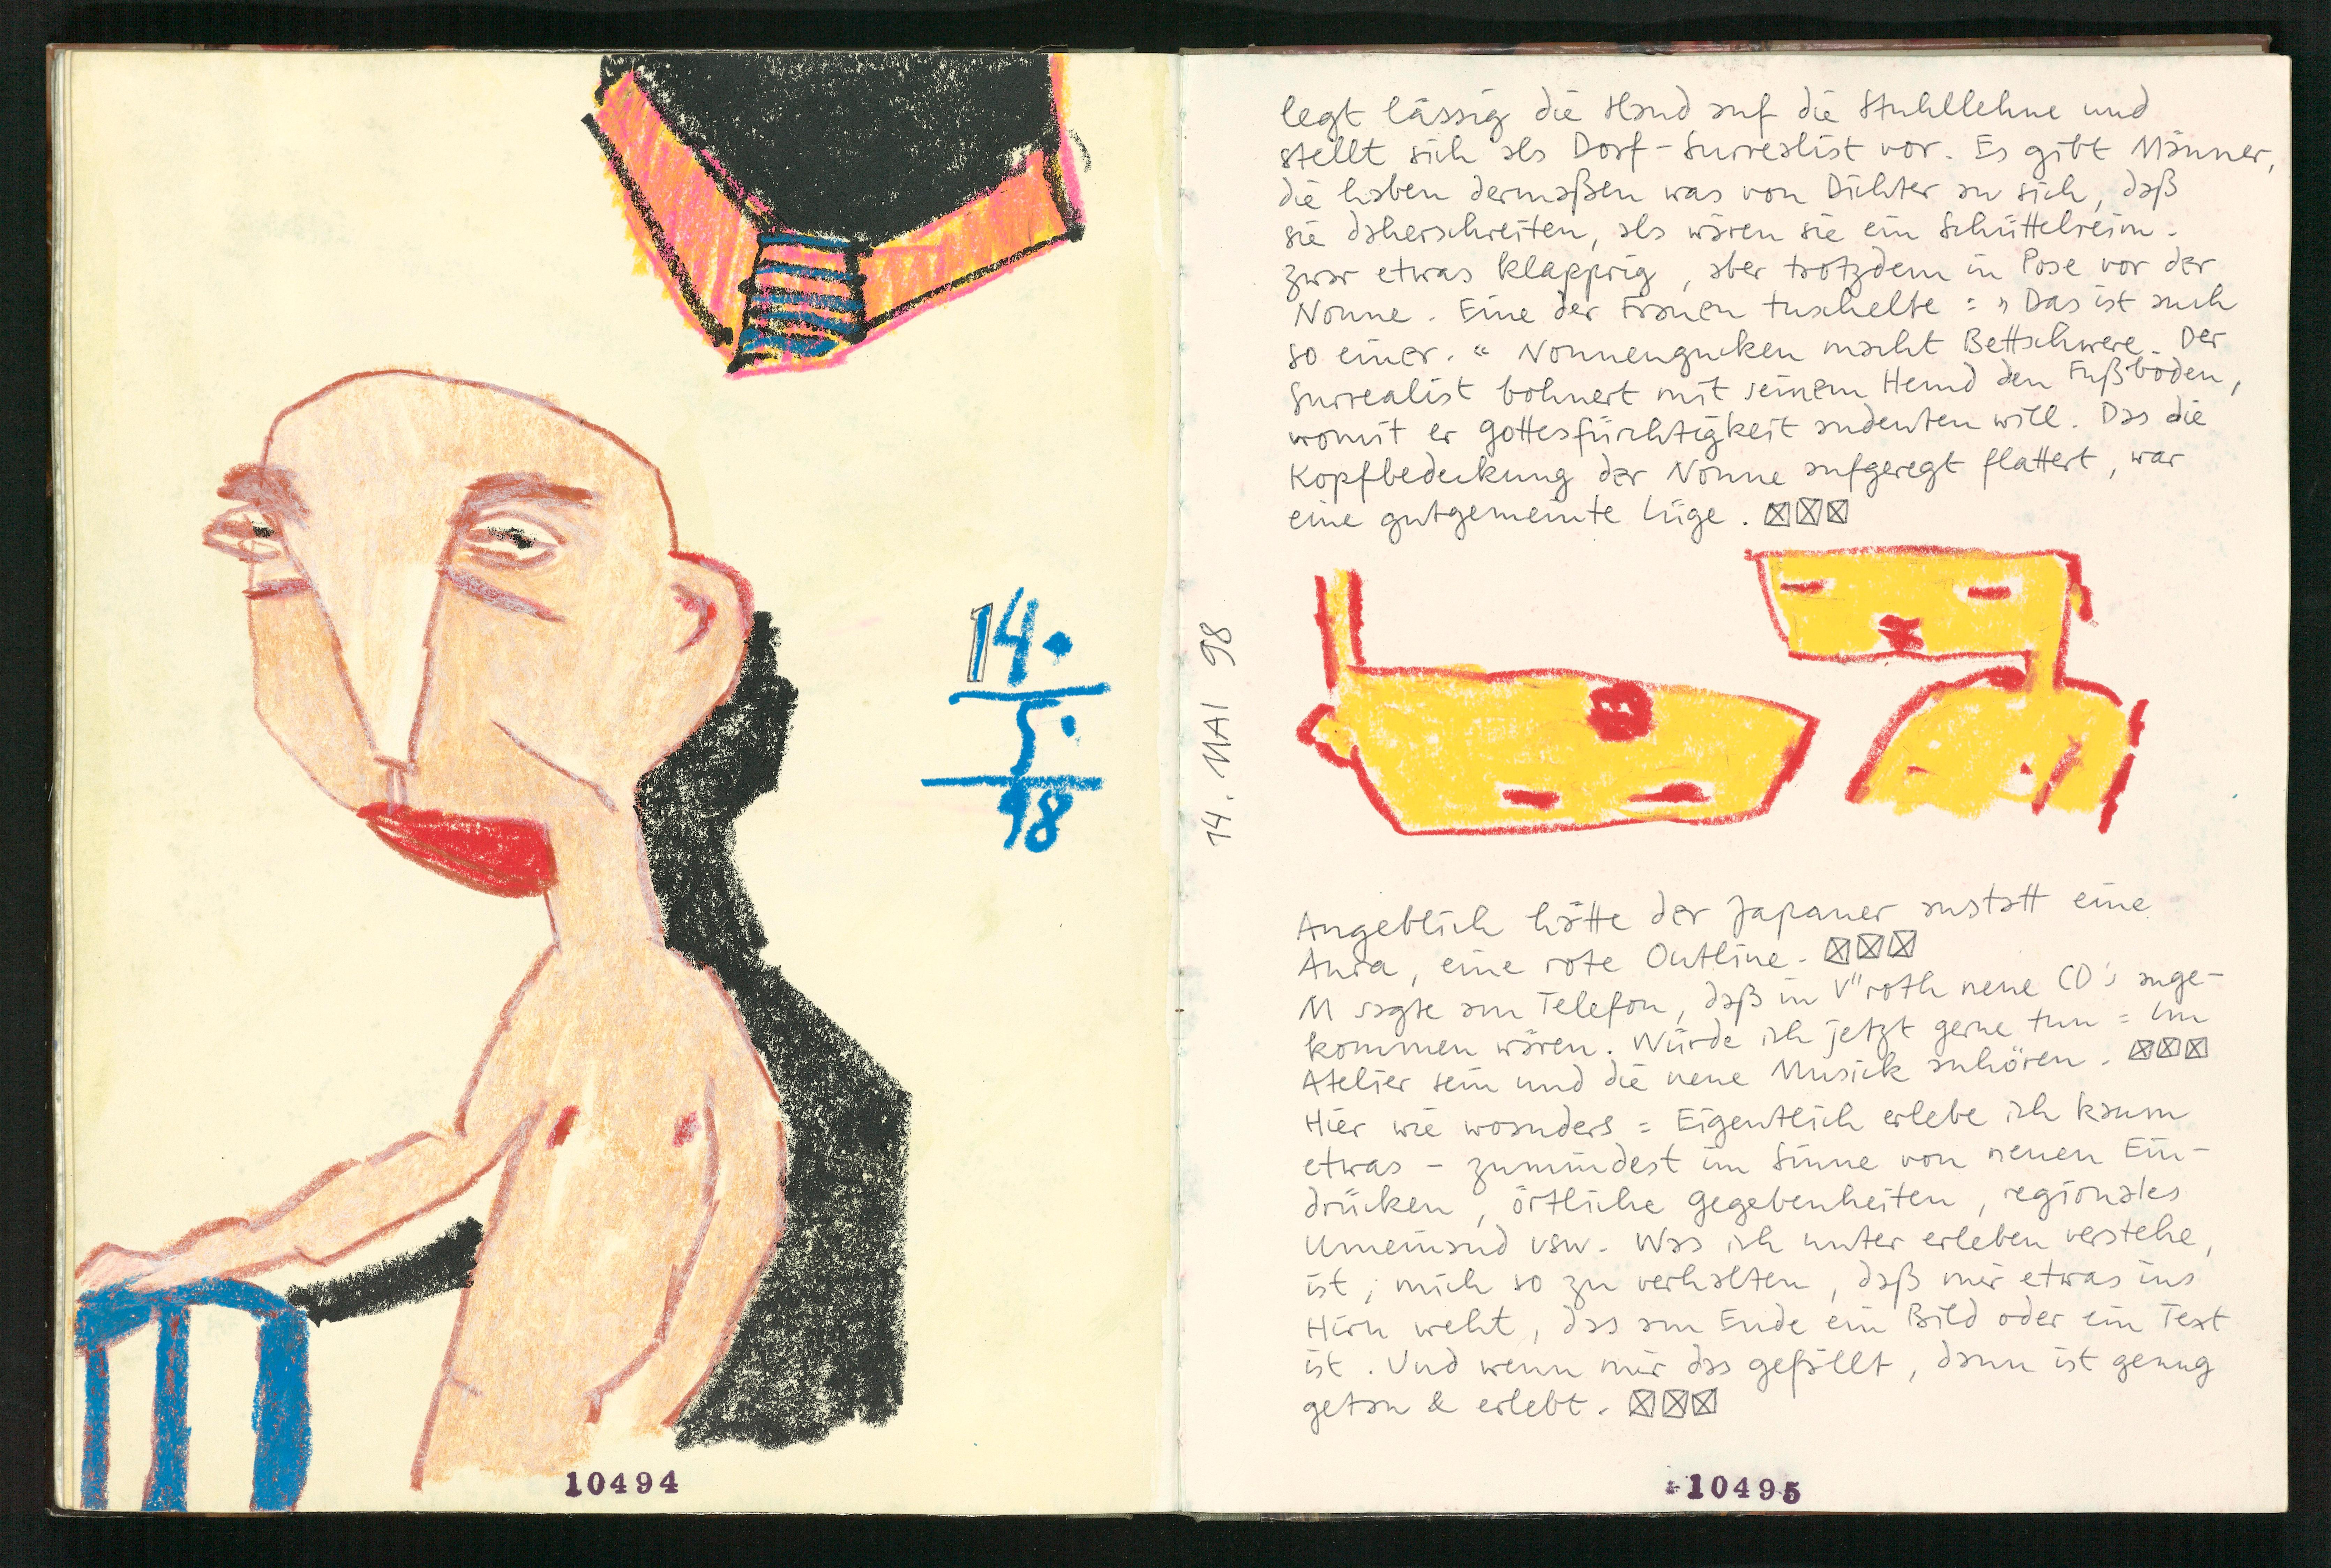 14.
5.
98
10494
14. MAI 98
legt lässig die Hand auf die Stuhllehne und
stellt sich als Dorf-Surrealist vor. Es gibt Männer,
die haben dermaßen was von Dichter an sich, daß
sie daherschreiten, als wären sie ein Schüttelreim.
zwar etwas klapprig, aber trotzdem in Pose vor der
Nonne. Eine der Frauen tuschelte: „Das ist auch
so einer.“ Nonnengucken macht Bettschwere. Der
Surrealist bohnert mit seinem Hemd den Fußboden,
womit er Gottesfürchtigkeit andeuten will. Das die
Kopfbedeckung der Nonne aufgeregt flattert, war
eine gutgemeinte Lüge. ☒☒☒
Angeblich hätte der Japaner anstatt eine
Aura, eine rote Outline. ☒☒☒
M sagte am Telefon, daß in V"roth neue CD's ange-
kommen wären. Würde ich jetzt gerne tun: im
Atelier sein und die neue Musick anhören. ☒☒☒
Hier wie woanders: Eigentlich erlebe ich kaum
etwas – zumindest im Sinne von neuen Ein-
drücken, örtliche Gegebenheiten, regionales
Umeinand usw. Was ich unter erleben verstehe,
ist, mich so zu verhalten, daß mir etwas ins
Hirn weht, das am Ende ein Bild oder ein Text
ist. Und wenn mir das gefällt, dann ist genug
getan & erlebt. ☒☒☒
10495